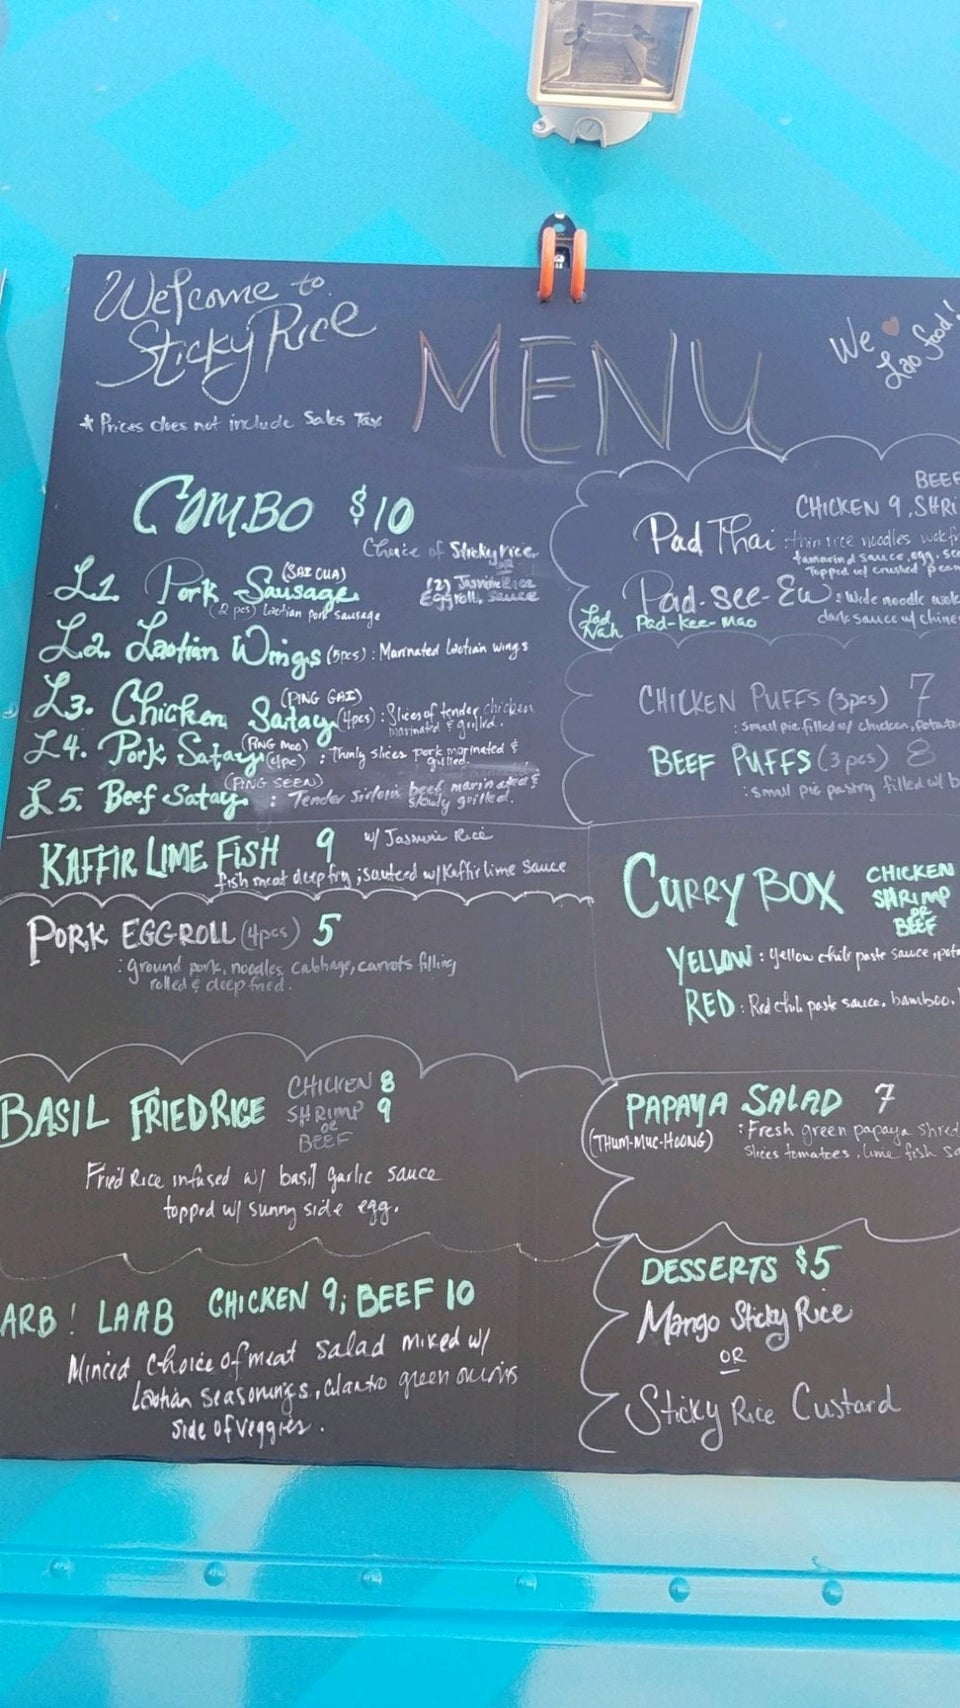 Welcome to
Sticky Rice
MENU
We ❤
Lao food!
* Prices does not include Sales Tax
COMBO $10
Choice of Stickyrice
or
(2) Jasmine Rice
Eggroll, Sauce
L1. Pork Sausage (SAI OUA)
(2 pcs) Laotian pork sausage
L2. Laotian Wings (5pcs) : Marinated Laotian wings
L3. Chicken Satay (PING GAI) (4pcs) : Slices of tender chicken
marinated & grilled.
L4. Pork Satay (PING MOO) (4pc) : Thinly slices pork marinated &
grilled.
L5. Beef Satay (PING SEEN) : Tender sirloin beef marinated &
slowly grilled.
KAFFIR LIME FISH 9 w/ Jasmine Rice
fish meat deep fry ; sauteed w/ Kaffir lime Sauce
PORK EGGROLL (4pcs) 5
: ground pork, noodles, cabbage, carrots filling
rolled & deep fried.
BASIL FRIED RICE
CHICKEN 8
SHRIMP 9
or
BEEF
Fried Rice infused w/ basil garlic sauce
topped w/ sunny side egg.
ARB ! LAAB CHICKEN 9; BEEF 10
Minced choice of meat salad mixed w/
Laotian seasonings, cilantro green onions
side of veggies.
BEEF
CHICKEN 9, SHRI
Pad Thai : thin rice noodles wok fr
tamarind sauce, egg, sc
Topped w/ crushed pean
Pad-See-Ew : Wide noodle wok
Lad
Nah Pad-Kee-Mao dark sauce w/ chine
CHICKEN PUFFS (3pcs) 7
: small pie filled w/ chicken, potato
BEEF PUFFS (3 pcs) 8
: small pie pastry filled w/ b
CURRY BOX
CHICKEN
SHRIMP
OR
BEEF
YELLOW : Yellow chili paste sauce, pota
RED : Red chili paste sauce, bamboo,
PAPAYA SALAD 7
(THUM-MUC-HOONG) : Fresh green papaya shred
slices tomatoes, lime fish sa
DESSERTS $5
Mango Sticky Rice
OR
Sticky Rice Custard